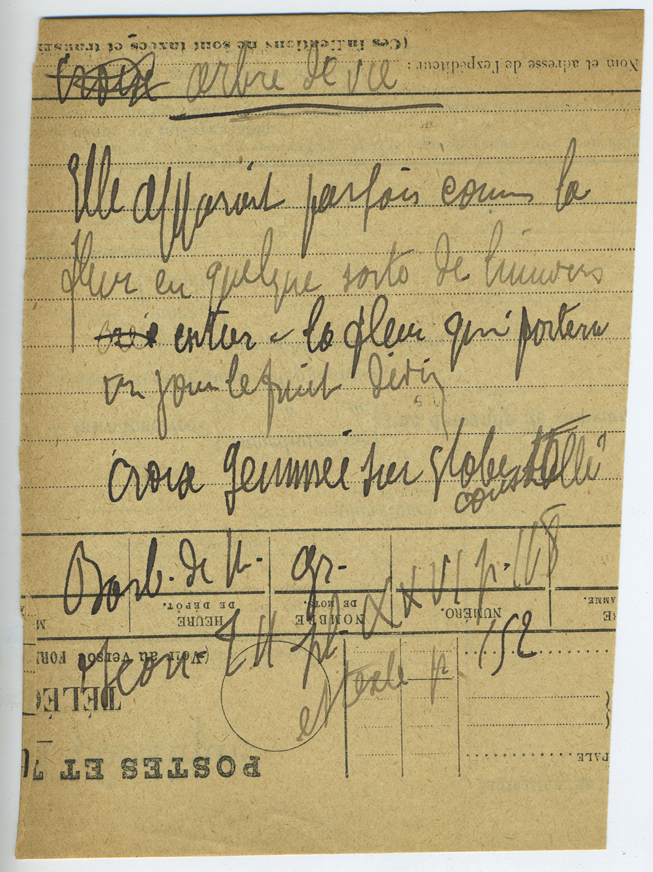 (Ces indications ne sont taxées et transm
Nom et adresse de l'expéditeur :
Croix arbre de vie
Elle apparait parfois comme la
fleur en quelque sorte de l'univers
entier - la fleur qui portera
un jour le fruit divin
Croix gemmée sur globe stellé
constellé
Barb. de M. gr. XXVI p. 148
NUMÉRO.
NOMBRE DE MOTS.
HEURE DE DÉPÔT.
pl. 152
et texte p.
(Voir au verso
TÉLÉG
POSTES ET TÉ